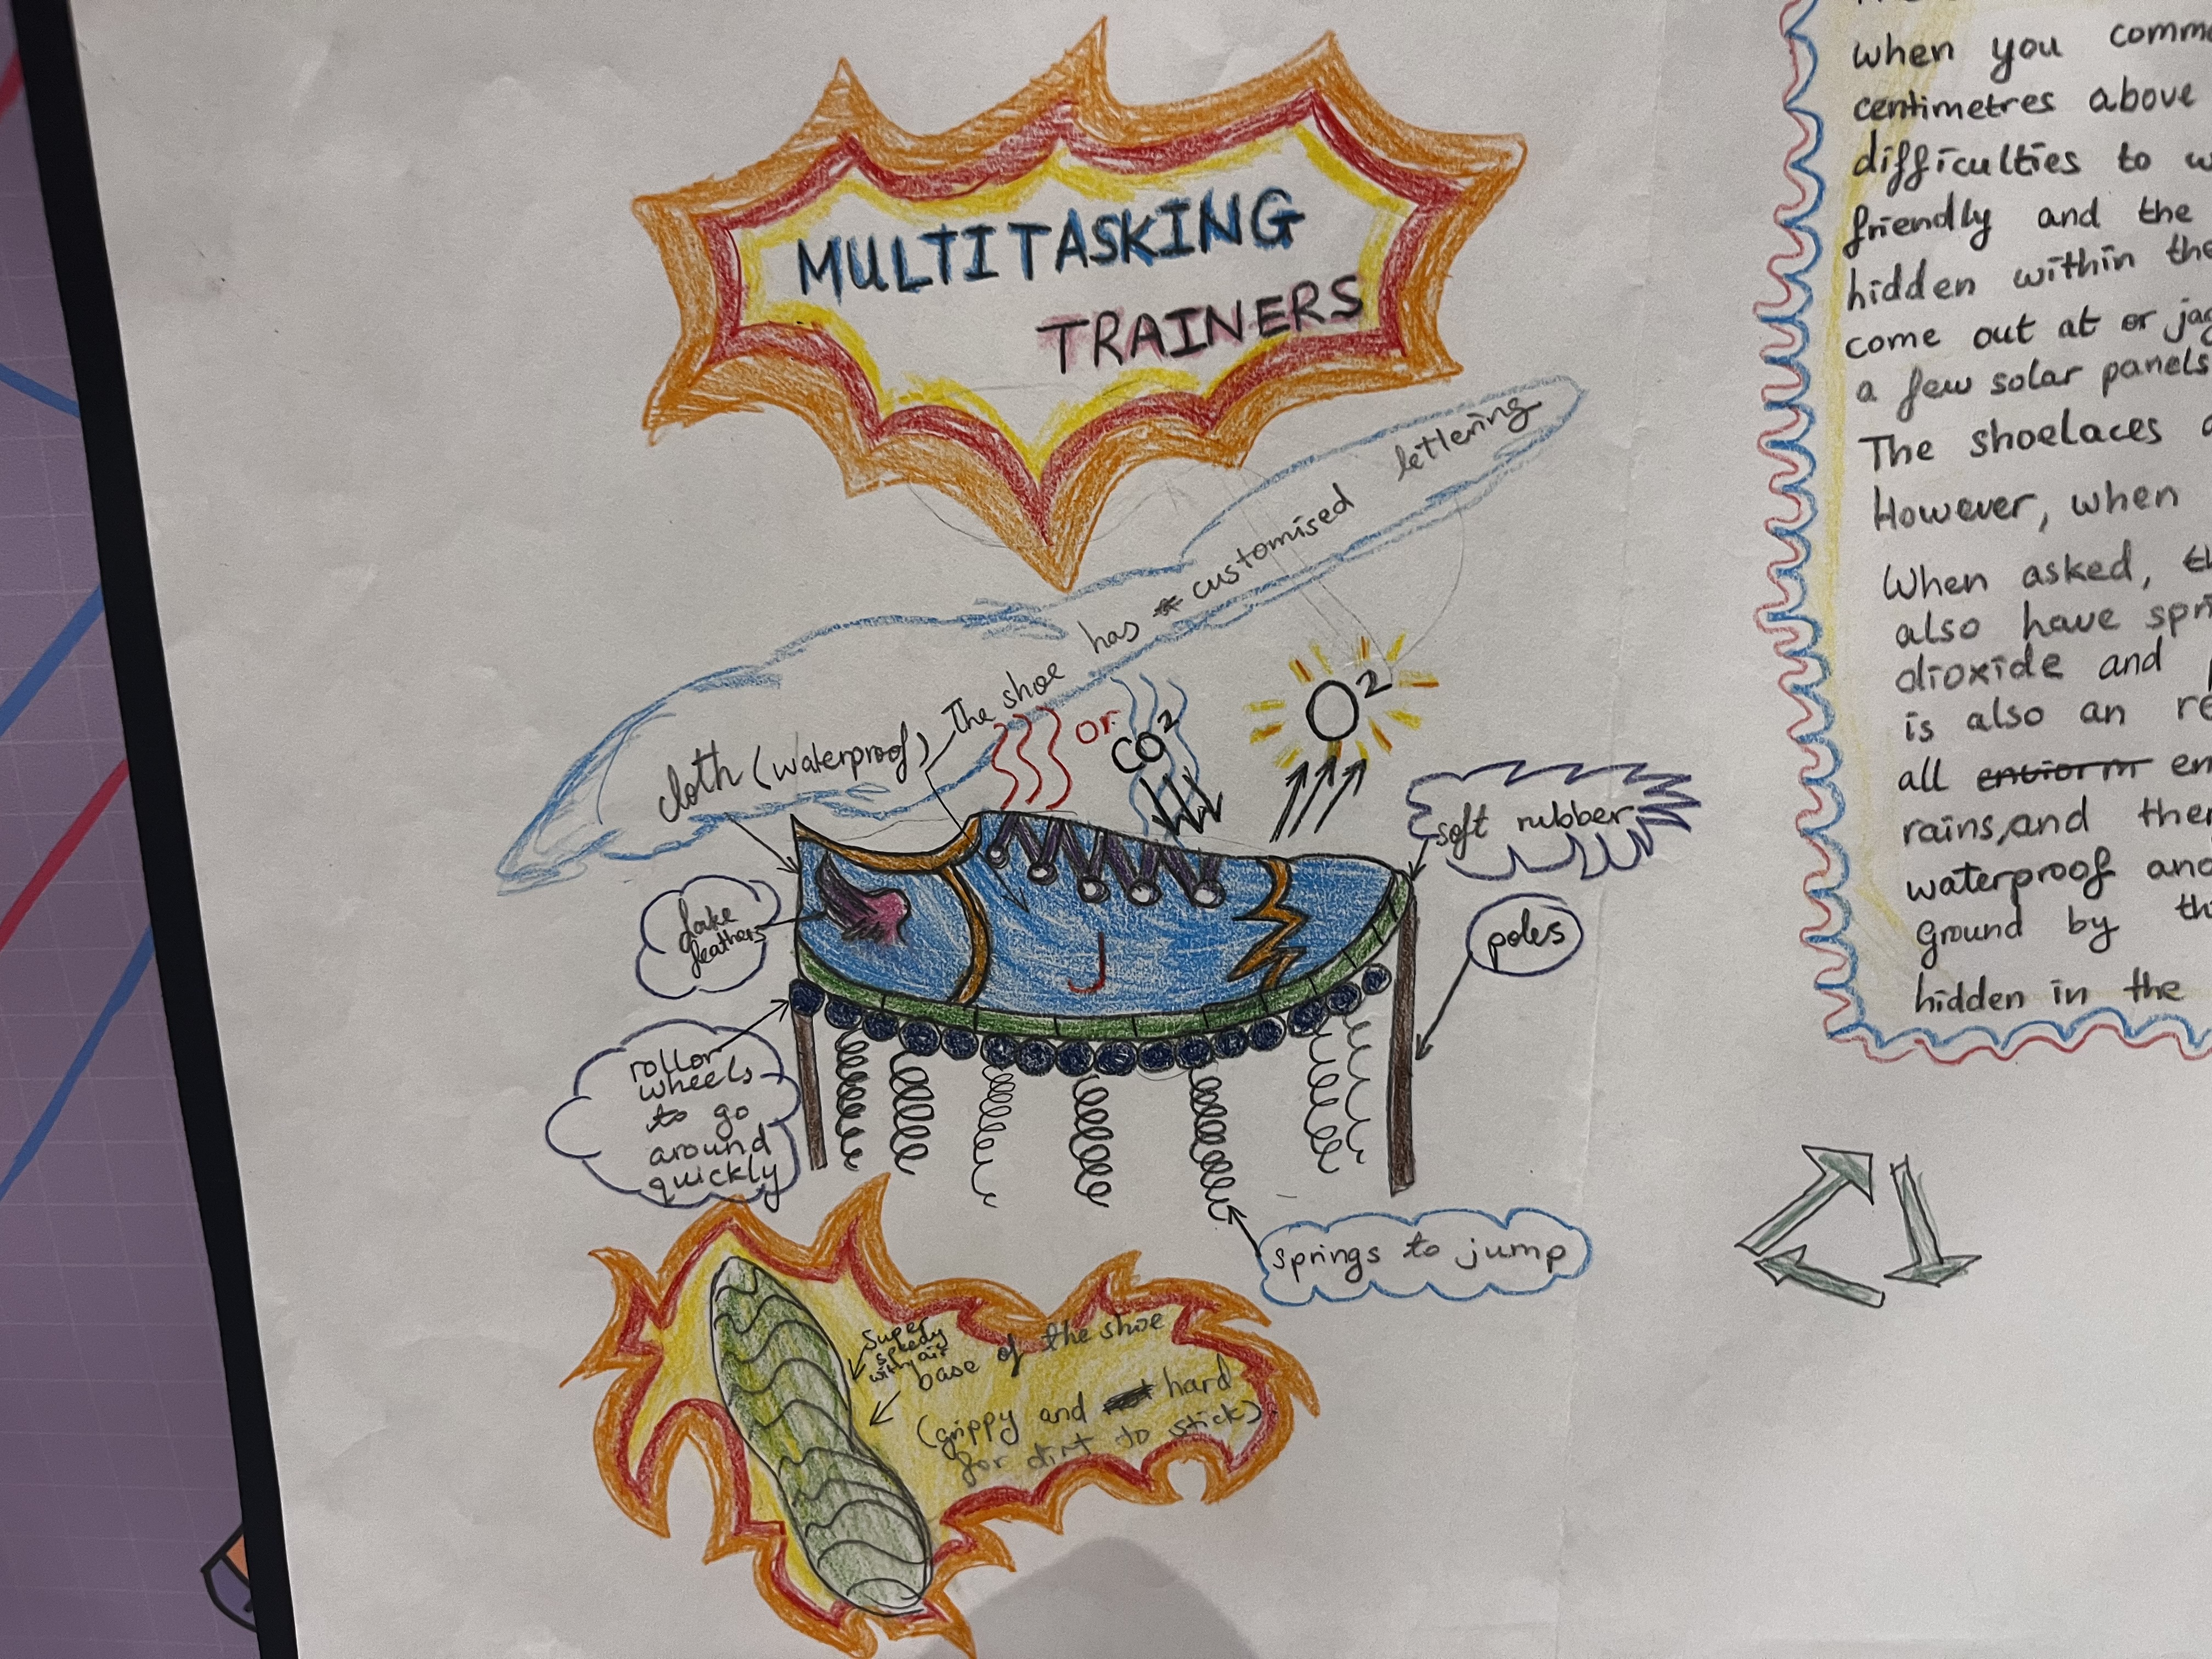 MULTITASKING
TRAINERS
cloth (waterproof)
The shoe has customised lettering
or
CO2
O2
soft rubber
fake
feathers
poles
J
rollor
wheels
to go
around
quickly
springs to jump
super
speedy
with air
base of the shoe
(grippy and hard
for dirt to stick)
when you comm
centimetres above
difficulties to w
friendly and the
hidden within the
come out at or jag
a few solar panels
The shoelaces
However, when
When asked, th
also have spri
dioxide and
is also an re
all enviorm en
rains, and ther
waterproof and
ground by th
hidden in the